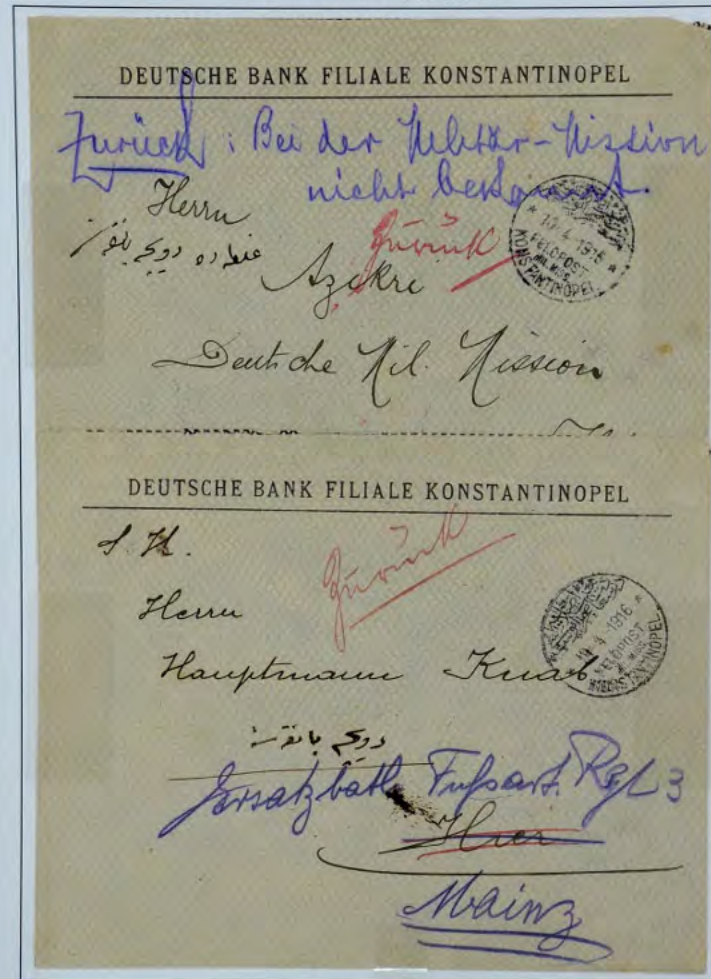 DEUTSCHE BANK FILIALE KONSTANTINOPEL
Zurück: Bei der Militär-Mission
nicht bekannt.
Herrn
Zurück
Azekri
Deutsche Mil. Mission
FELDPOST
MIL. MISS.
KONSTANTINOPEL
DEUTSCHE BANK FILIALE KONSTANTINOPEL
S. H.
Zurück
Herrn
Hauptmann Knab
FELDPOST
MIL. MISS.
KONSTANTINOPEL
دويچه بانق
Ersatzbatl. Fussart. Rgt 3
Hier
Mainz